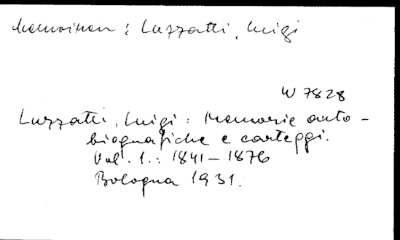 Memoiren : Luzzatti, Luigi
W 7828
Luzzatti, Luigi : Memorie auto-
biografiche e carteggi.
Vol. 1. : 1841–1876
Bologna 1931.